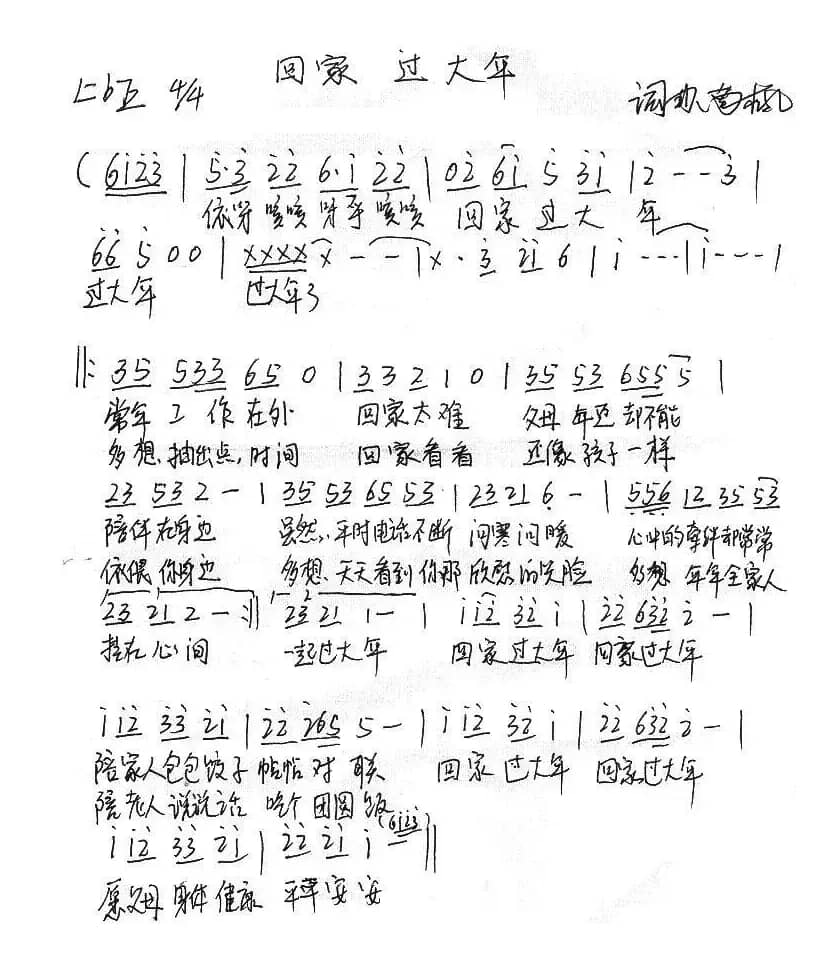 回家 过大年
4/4 词曲
(6123 | 5·3 22 6·1 22 | 02 61 5 31 | 2 - - 3 |
依呀 嗨嗨 呀乎 嗨嗨 回家 过 大 年
66 5 0 0 | xxxx x - - | x · 3 21 6 | 1 - - - | 1 - - - |
过大年 过大年了
‖: 35 533 65 0 | 3 3 2 1 0 | 35 53 655 5 |
常年 工作 在外 回家太难 父母 年迈 却不能
多想 抽出点 时间 回家看看 还像 孩子 一样
23 53 2 - | 35 53 65 53 | 23 21 6 - | 556 12 35 53
陪伴在身边 虽然 平时电话不断 问寒问暖 心中的牵绊却常常
依偎你身边 多想 天天看到你那 欣慰的笑脸 多想 年年全家人
23 21 2 - :‖ 23 21 1 - | 1 12 32 1 | 22 632 2 - |
挂在心间 一起过大年 回家过大年 回家过大年
1 12 33 21 | 22 265 5 - | 1 12 32 1 | 22 632 2 - |
陪家人包包饺子 帖帖对联 回家过大年 回家过大年
陪老人说说话 吃个团圆饭
1 12 33 21 | 22 21 1 (6123 ‖
愿父母 身体健康 平平安安